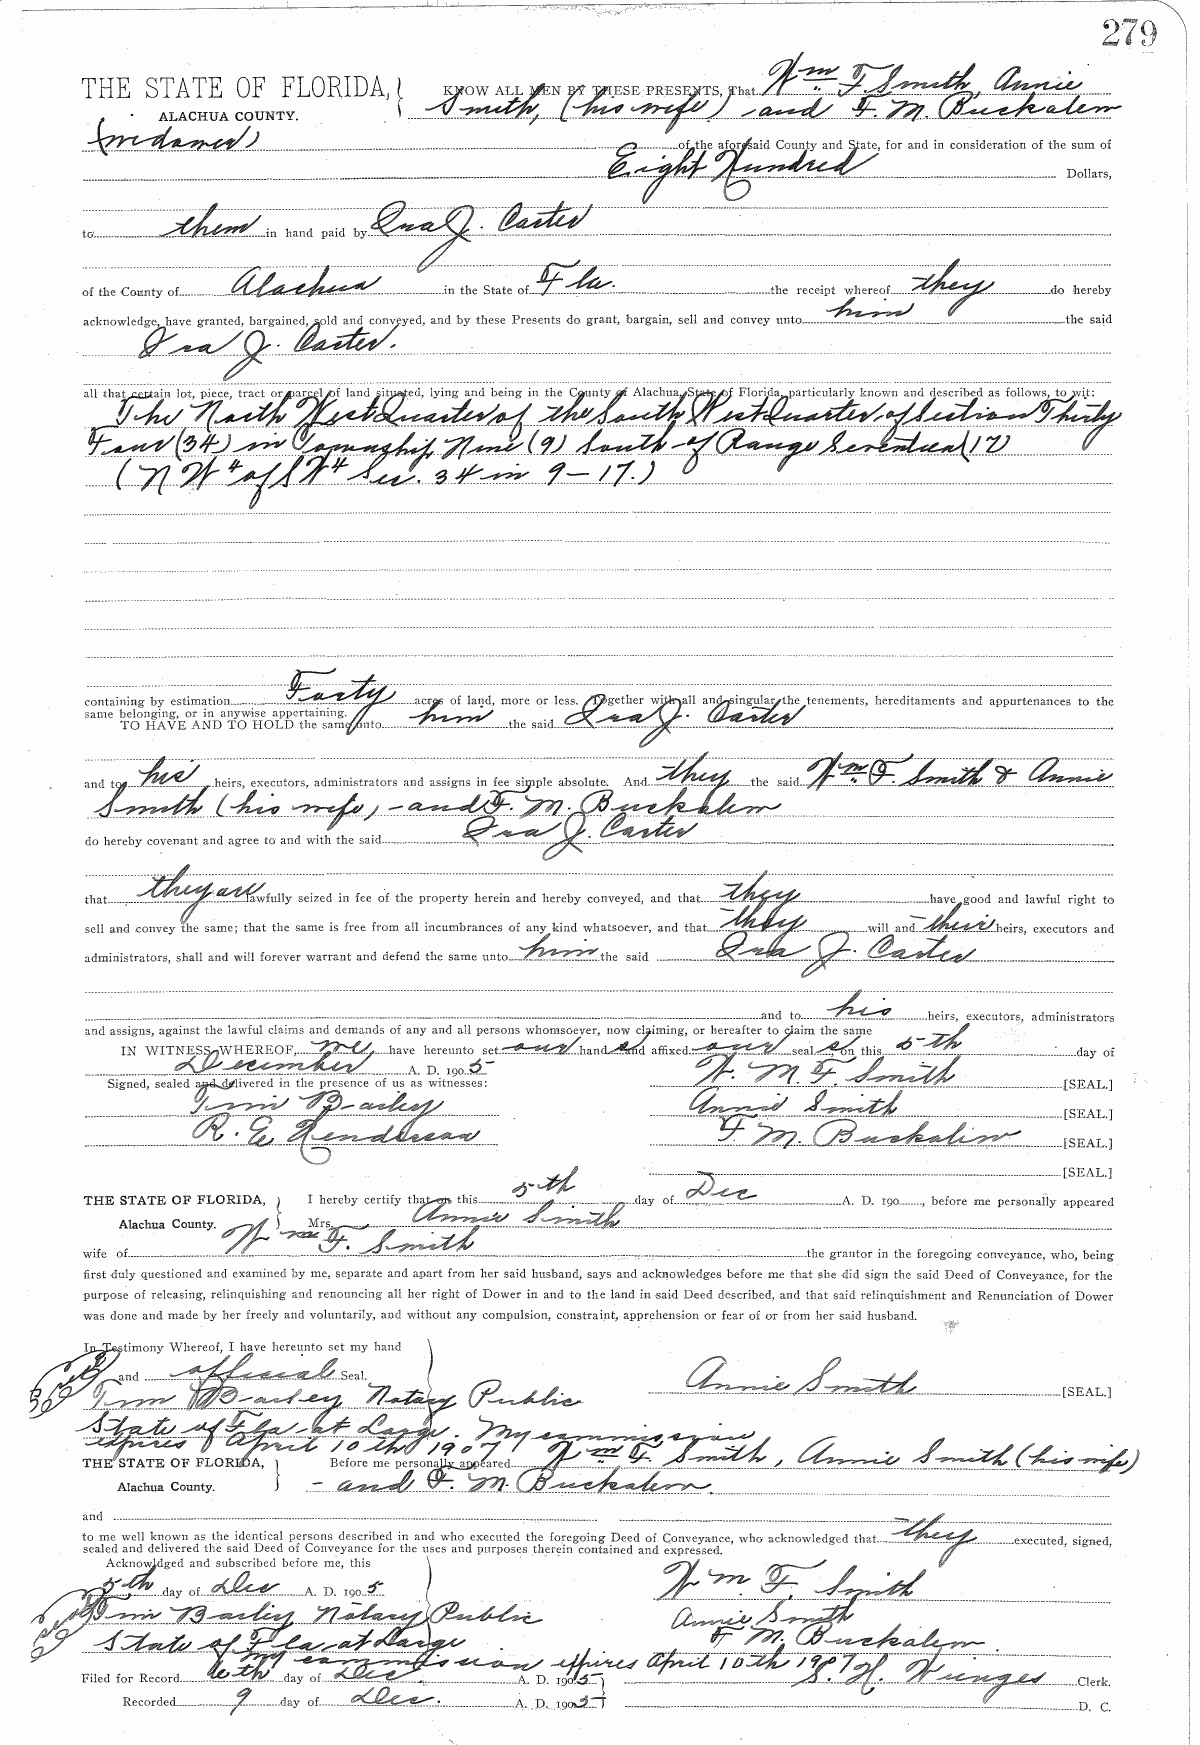 279
THE STATE OF FLORIDA, KNOW ALL MEN BY THESE PRESENTS, That Wm F. Smith, Annie
ALACHUA COUNTY. Smith, (his wife) and F. M. Buckalem
of the aforesaid County and State, for and in consideration of the sum of
Eight Hundred Dollars,
to them in hand paid by Ira J. Carter
of the County of Alachua in the State of Fla. the receipt whereof they do hereby
acknowledge, have granted, bargained, sold and conveyed, and by these Presents do grant, bargain, sell and convey unto him the said
Ira J. Carter.
all that certain lot, piece, tract or parcel of land situated, lying and being in the County of Alachua, State of Florida, particularly known and described as follows, to wit:
The North West Quarter of the South West Quarter of Section Thirty
Four (34) in Township Nine (9) South of Range Seventeen (17)
(N W 4 of S W 4 Sec. 34 in 9-17.)
containing by estimation Forty acres of land, more or less. Together with all and singular the tenements, hereditaments and appurtenances to the
same belonging, or in anywise appertaining.
TO HAVE AND TO HOLD the same unto him the said Ira J. Carter
and to his heirs, executors, administrators and assigns in fee simple absolute. And they the said Wm F. Smith & Annie
Smith (his wife) - and F. M. Buckalem
do hereby covenant and agree to and with the said Ira J. Carter
that they are lawfully seized in fee of the property herein and hereby conveyed, and that they have good and lawful right to
sell and convey the same; that the same is free from all incumbrances of any kind whatsoever, and that they will and their heirs, executors and
administrators, shall and will forever warrant and defend the same unto him the said Ira J. Carter
and to his heirs, executors, administrators
and assigns, against the lawful claims and demands of any and all persons whomsoever, now claiming, or hereafter to claim the same
IN WITNESS WHEREOF, we have hereunto set our hand s and affixed our seal s on this 5th day of
December A. D. 190 5 W. M. F. Smith [SEAL.]
Signed, sealed and delivered in the presence of us as witnesses:
Tom Bailey Annie Smith [SEAL.]
R. E. Henderson F. M. Buckalem [SEAL.]
[SEAL.]
THE STATE OF FLORIDA, I hereby certify that on this 5th day of Dec A. D. 190 , before me personally appeared
Alachua County. Mrs. Annie Smith
wife of Wm F. Smith the grantor in the foregoing conveyance, who, being
first duly questioned and examined by me, separate and apart from her said husband, says and acknowledges before me that she did sign the said Deed of Conveyance, for the
purpose of releasing, relinquishing and renouncing all her right of Dower in and to the land in said Deed described, and that said relinquishment and Renunciation of Dower
was done and made by her freely and voluntarily, and without any compulsion, constraint, apprehension or fear of or from her said husband.
In Testimony Whereof, I have hereunto set my hand
and official Seal. Annie Smith [SEAL.]
Tom Bailey Notary Public
State of Fla at Large. My commission
expires April 10th 1907
THE STATE OF FLORIDA, Before me personally appeared Wm F. Smith, Annie Smith (his wife)
Alachua County. - and F. M. Buckalem.
and
to me well known as the identical persons described in and who executed the foregoing Deed of Conveyance, who acknowledged that they executed, signed,
sealed and delivered the said Deed of Conveyance for the uses and purposes therein contained and expressed.
Acknowldged and subscribed before me, this
5th day of Dec A. D. 190 5 Wm F. Smith
Tom Bailey Notary Public Annie Smith
State of Fla at Large F. M. Buckalem.
My commission expires April 10th 1907
Filed for Record day of Dec. A. D. 190 5 S. H. Wienges Clerk.
Recorded 9 day of Dec. A. D. 190 5 D. C.